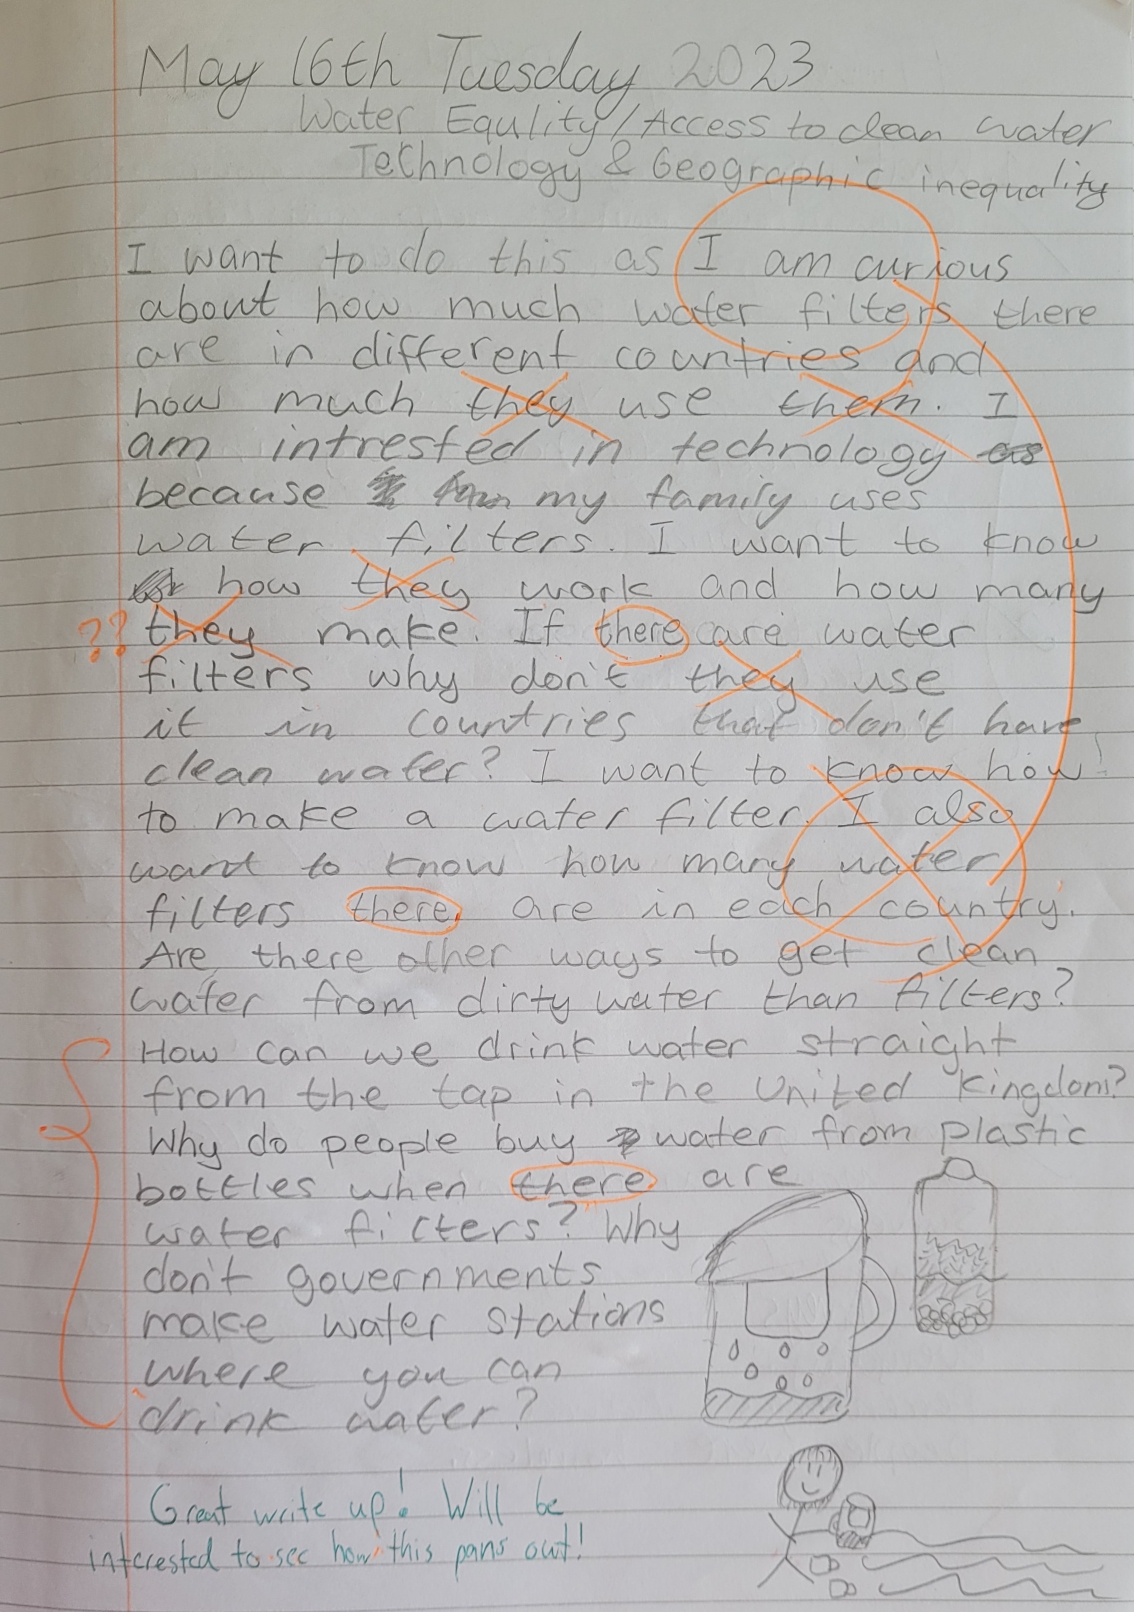 May 16th Tuesday 2023
Water Equlity/Access to clean water
Technology & Geographic inequality
I want to do this as I am curious
about how much water filters there
are in different countries and
how much they use them. I
am intrested in technology as
because my family uses
water filters. I want to know
how they work and how many
?? they make. If there are water
filters why don't they use
it in countries that don't have
clean water? I want to know how
to make a water filter. I also
want to know how many water
filters there are in each country.
Are there other ways to get clean
water from dirty water than filters?
How can we drink water straight
from the tap in the United Kingdom?
Why do people buy water from plastic
bottles when there are
water filters? Why
don't governments
make water stations
where you can
drink water?
Great write up! Will be
interested to see how this pans out!